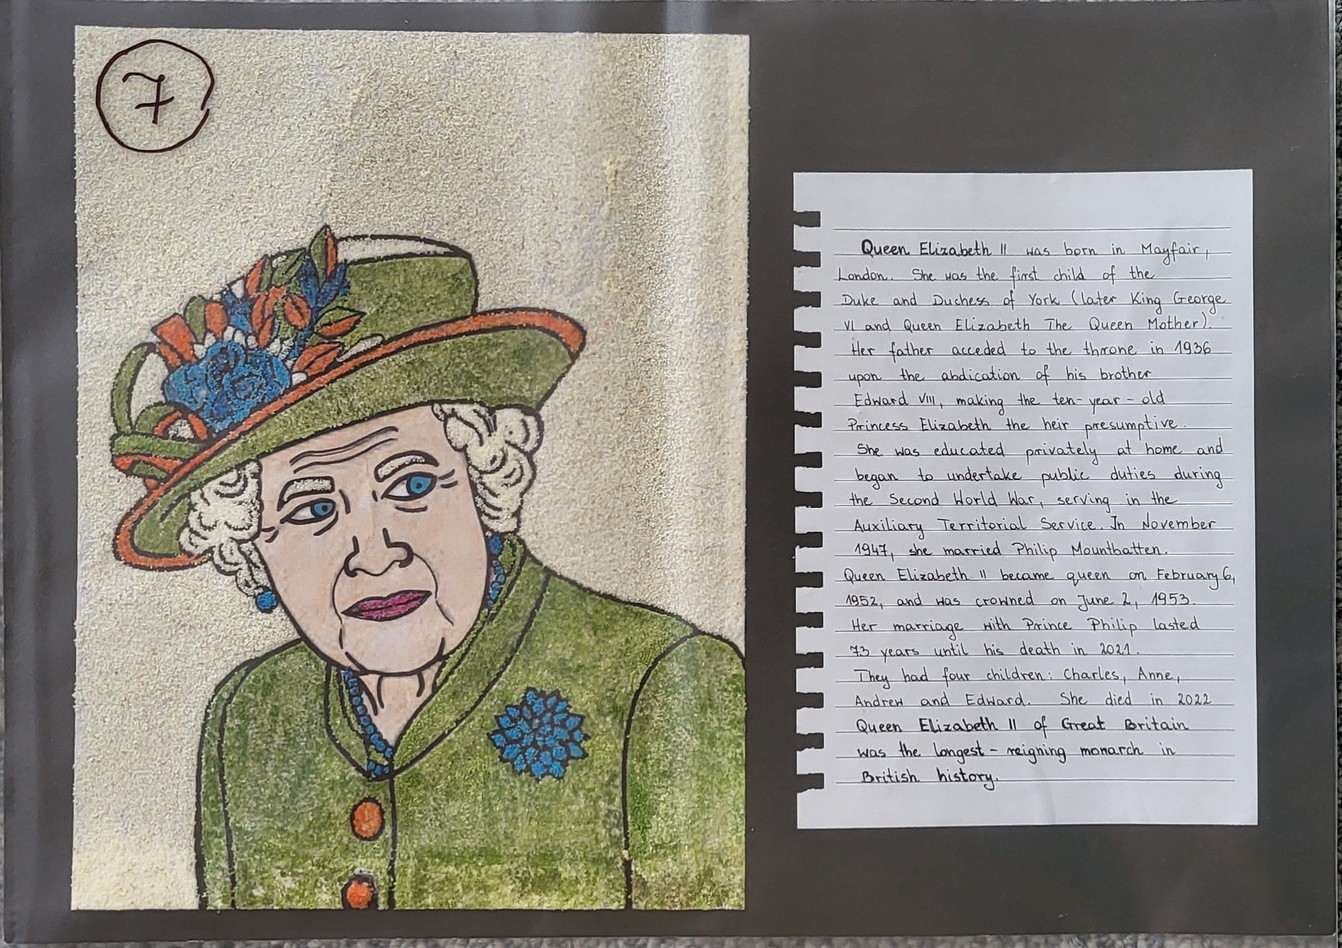 7
Queen Elizabeth II was born in Mayfair,
London. She was the first child of the
Duke and Duchess of York (later King George
VI and Queen Elizabeth The Queen Mother).
Her father acceded to the throne in 1936
upon the abdication of his brother
Edward VIII, making the ten-year-old
Princess Elizabeth the heir presumptive.
She was educated privately at home and
began to undertake public duties during
the Second World War, serving in the
Auxiliary Territorial Service. In November
1947, she married Philip Mountbatten.
Queen Elizabeth II became queen on February 6,
1952, and was crowned on June 2, 1953.
Her marriage with Prince Philip lasted
73 years until his death in 2021.
They had four children: Charles, Anne,
Andrew and Edward. She died in 2022
Queen Elizabeth II of Great Britain
was the longest-reigning monarch in
British history.